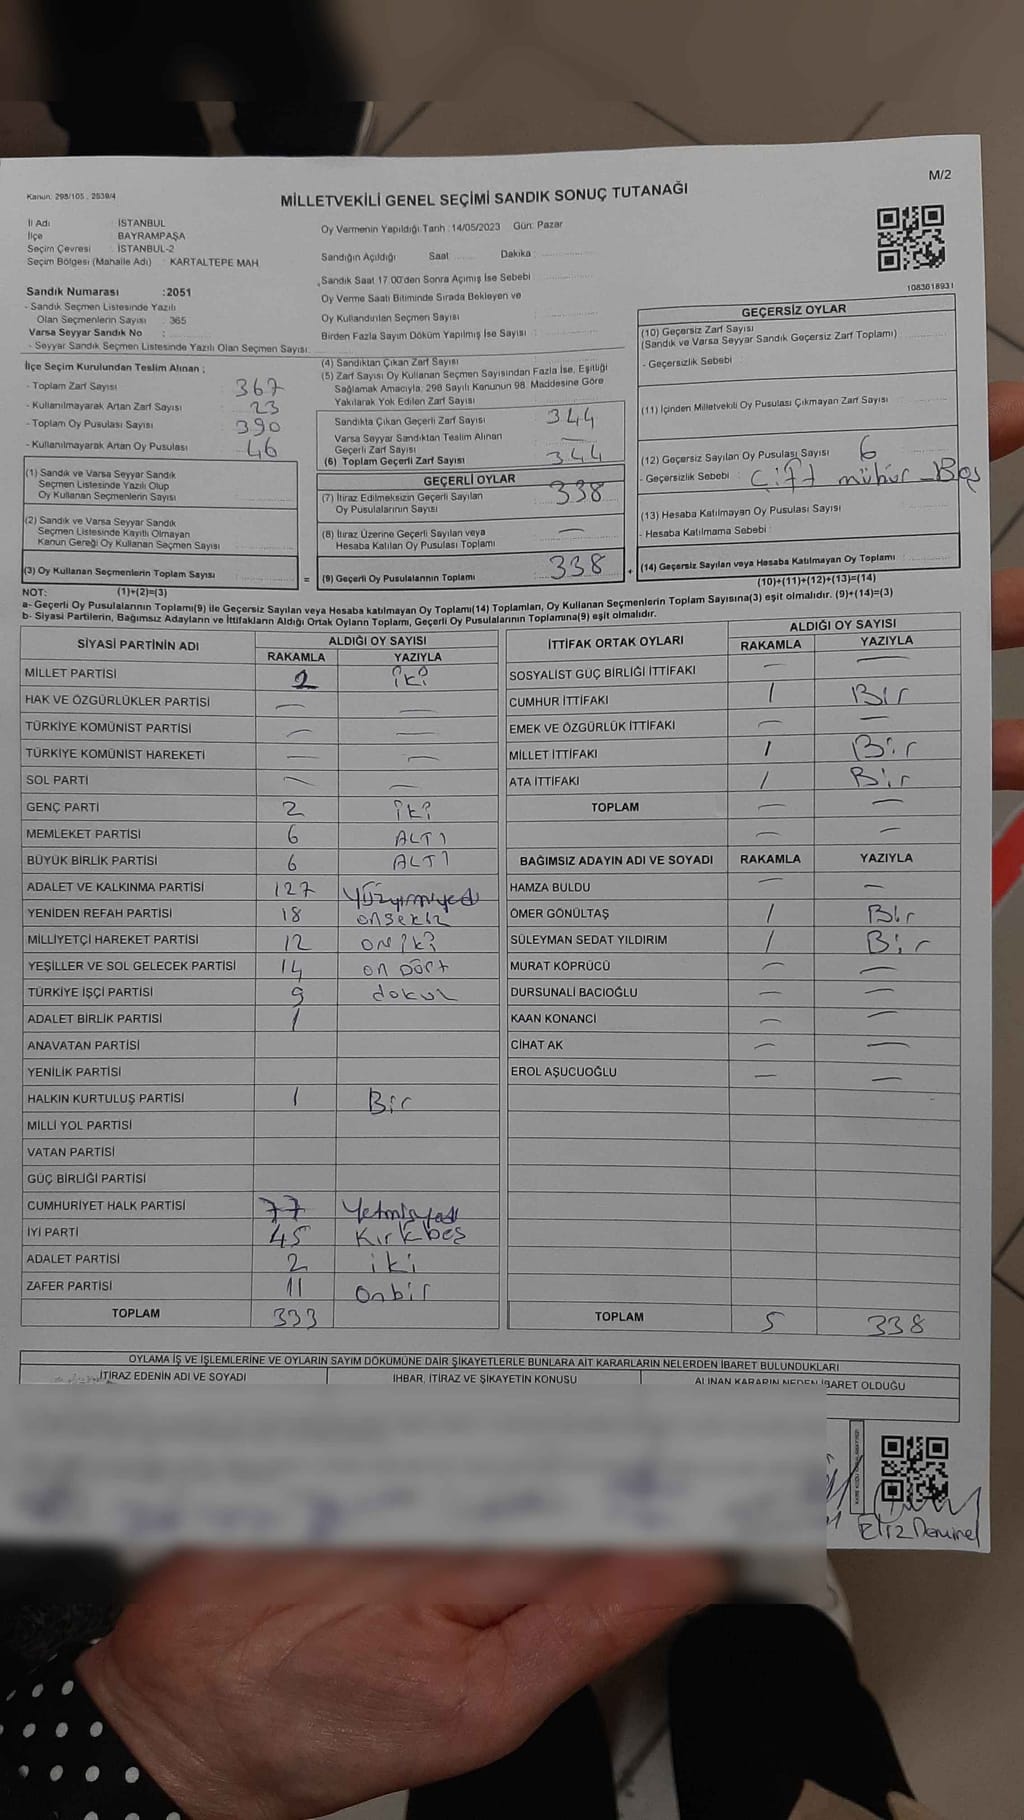 M/2
Kanun: 298/105 , 2839/4
MİLLETVEKİLİ GENEL SEÇİMİ SANDIK SONUÇ TUTANAĞI
İl Adı İSTANBUL
İlçe BAYRAMPAŞA
Seçim Çevresi : İSTANBUL-2
Seçim Bölgesi (Mahalle Adı) : KARTALTEPE MAH
Sandık Numarası :2051
- Sandık Seçmen Listesinde Yazılı
Olan Seçmenlerin Sayısı : 365
Varsa Seyyar Sandık No :
- Seyyar Sandık Seçmen Listesinde Yazılı Olan Seçmen Sayısı:
Oy Vermenin Yapıldığı Tarih :14/05/2023 Gün: Pazar
Sandığın Açıldığı Saat Dakika :
Sandık Saat 17:00'den Sonra Açımış İse Sebebi :
Oy Verme Saati Bitiminde Sırada Bekleyen ve
Oy Kullandırılan Seçmen Sayısı
Birden Fazla Sayım Döküm Yapılmış İse Sayısı
1083618931
İlçe Seçim Kurulundan Teslim Alınan ;
- Toplam Zarf Sayısı 367
- Kullanılmayarak Artan Zarf Sayısı 23
- Toplam Oy Pusulası Sayısı 390
- Kullanılmayarak Artan Oy Pusulası 46
(1) Sandık ve Varsa Seyyar Sandık
Seçmen Listesinde Yazılı Olup
Oy Kullanan Seçmenlerin Sayısı
(2) Sandık ve Varsa Seyyar Sandık
Seçmen Listesinde Kayıtlı Olmayan
Kanun Gereği Oy Kullanan Seçmen Sayısı
(3) Oy Kullanan Seçmenlerin Toplam Sayısı
(4) Sandıktan Çıkan Zarf Sayısı
(5) Zarf Sayısı Oy Kullanan Seçmen Sayısından Fazla İse, Eşitliği
Sağlamak Amacıyla; 298 Sayılı Kanunun 98. Maddesine Göre
Yakılarak Yok Edilen Zarf Sayısı
Sandıkta Çıkan Geçerli Zarf Sayısı 344
Varsa Seyyar Sandıktan Teslim Alınan
Geçerli Zarf Sayısı —
(6) Toplam Geçerli Zarf Sayısı 344
GEÇERLİ OYLAR
(7) İtiraz Edilmeksizin Geçerli Sayılan
Oy Pusulalarının Sayısı 338
(8) İtiraz Üzerine Geçerli Sayılan veya
Hesaba Katılan Oy Pusulası Toplamı —
= (9) Geçerli Oy Pusulalarının Toplamı 338 +
GEÇERSİZ OYLAR
(10) Geçersiz Zarf Sayısı
(Sandık ve Varsa Seyyar Sandık Geçersiz Zarf Toplamı)
- Geçersizlik Sebebi :
(11) İçinden Milletvekili Oy Pusulası Çıkmayan Zarf Sayısı
(12) Geçersiz Sayılan Oy Pusulası Sayısı 6
- Geçersizlik Sebebi : Çift mühür - Boş
(13) Hesaba Katılmayan Oy Pusulası Sayısı
- Hesaba Katılmama Sebebi :
(14) Geçersiz Sayılan veya Hesaba Katılmayan Oy Toplamı
NOT: (1)+(2)=(3) (10)+(11)+(12)+(13)=(14)
a- Geçerli Oy Pusulalarının Toplamı(9) ile Geçersiz Sayılan veya Hesaba katılmayan Oy Toplamı(14) Toplamları, Oy Kullanan Seçmenlerin Toplam Sayısına(3) eşit olmalıdır. (9)+(14)=(3)
b- Siyasi Partilerin, Bağımsız Adayların ve İttifakların Aldığı Ortak Oyların Toplamı, Geçerli Oy Pusulalarının Toplamına(9) eşit olmalıdır.
SİYASİ PARTİNİN ADI ALDIĞI OY SAYISI
RAKAMLA YAZIYLA
MİLLET PARTİSİ 2 iki
HAK VE ÖZGÜRLÜKLER PARTİSİ — —
TÜRKİYE KOMÜNİST PARTİSİ — —
TÜRKİYE KOMÜNİST HAREKETİ — —
SOL PARTİ — —
GENÇ PARTİ 2 iki
MEMLEKET PARTİSİ 6 ALTI
BÜYÜK BİRLİK PARTİSİ 6 ALTI
ADALET VE KALKINMA PARTİSİ 127 Yüzyirmiyedi
YENİDEN REFAH PARTİSİ 18 onsekiz
MİLLİYETÇİ HAREKET PARTİSİ 12 on iki
YEŞİLLER VE SOL GELECEK PARTİSİ 14 on Dört
TÜRKİYE İŞÇİ PARTİSİ 9 dokuz
ADALET BİRLİK PARTİSİ 1
ANAVATAN PARTİSİ
YENİLİK PARTİSİ
HALKIN KURTULUŞ PARTİSİ 1 Bir
MİLLİ YOL PARTİSİ
VATAN PARTİSİ
GÜÇ BİRLİĞİ PARTİSİ
CUMHURİYET HALK PARTİSİ 77 Yetmişyedi
İYİ PARTİ 45 Kırkbeş
ADALET PARTİSİ 2 iki
ZAFER PARTİSİ 11 Onbir
TOPLAM 333
İTTİFAK ORTAK OYLARI ALDIĞI OY SAYISI
RAKAMLA YAZIYLA
SOSYALİST GÜÇ BİRLİĞİ İTTİFAKI — —
CUMHUR İTTİFAKI 1 Bir
EMEK VE ÖZGÜRLÜK İTTİFAKI — —
MİLLET İTTİFAKI 1 Bir
ATA İTTİFAKI 1 Bir
TOPLAM — —
— —
BAĞIMSIZ ADAYIN ADI VE SOYADI RAKAMLA YAZIYLA
HAMZA BULDU — —
ÖMER GÖNÜLTAŞ 1 Bir
SÜLEYMAN SEDAT YILDIRIM 1 Bir
MURAT KÖPRÜCÜ — —
DURSUNALİ BACIOĞLU — —
KAAN KONANCİ — —
CİHAT AK — —
EROL AŞUCUOĞLU — —
TOPLAM 5 338
OYLAMA İŞ VE İŞLEMLERİNE VE OYLARIN SAYIM DÖKÜMÜNE DAİR ŞİKAYETLERLE BUNLARA AİT KARARLARIN NELERDEN İBARET BULUNDUKLARI
İTİRAZ EDENİN ADI VE SOYADI İHBAR, İTİRAZ VE ŞİKAYETİN KONUSU ALINAN KARARIN NEDEN İBARET OLDUĞU